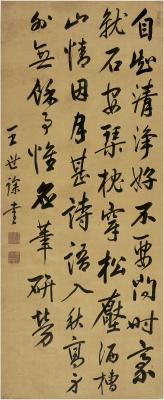 自知清淨好不要問時豪
就石安琴枕穿松壓酒槽
山情因月甚詩語入秋高身
外無餘事惟應筆研勞
王世琛書